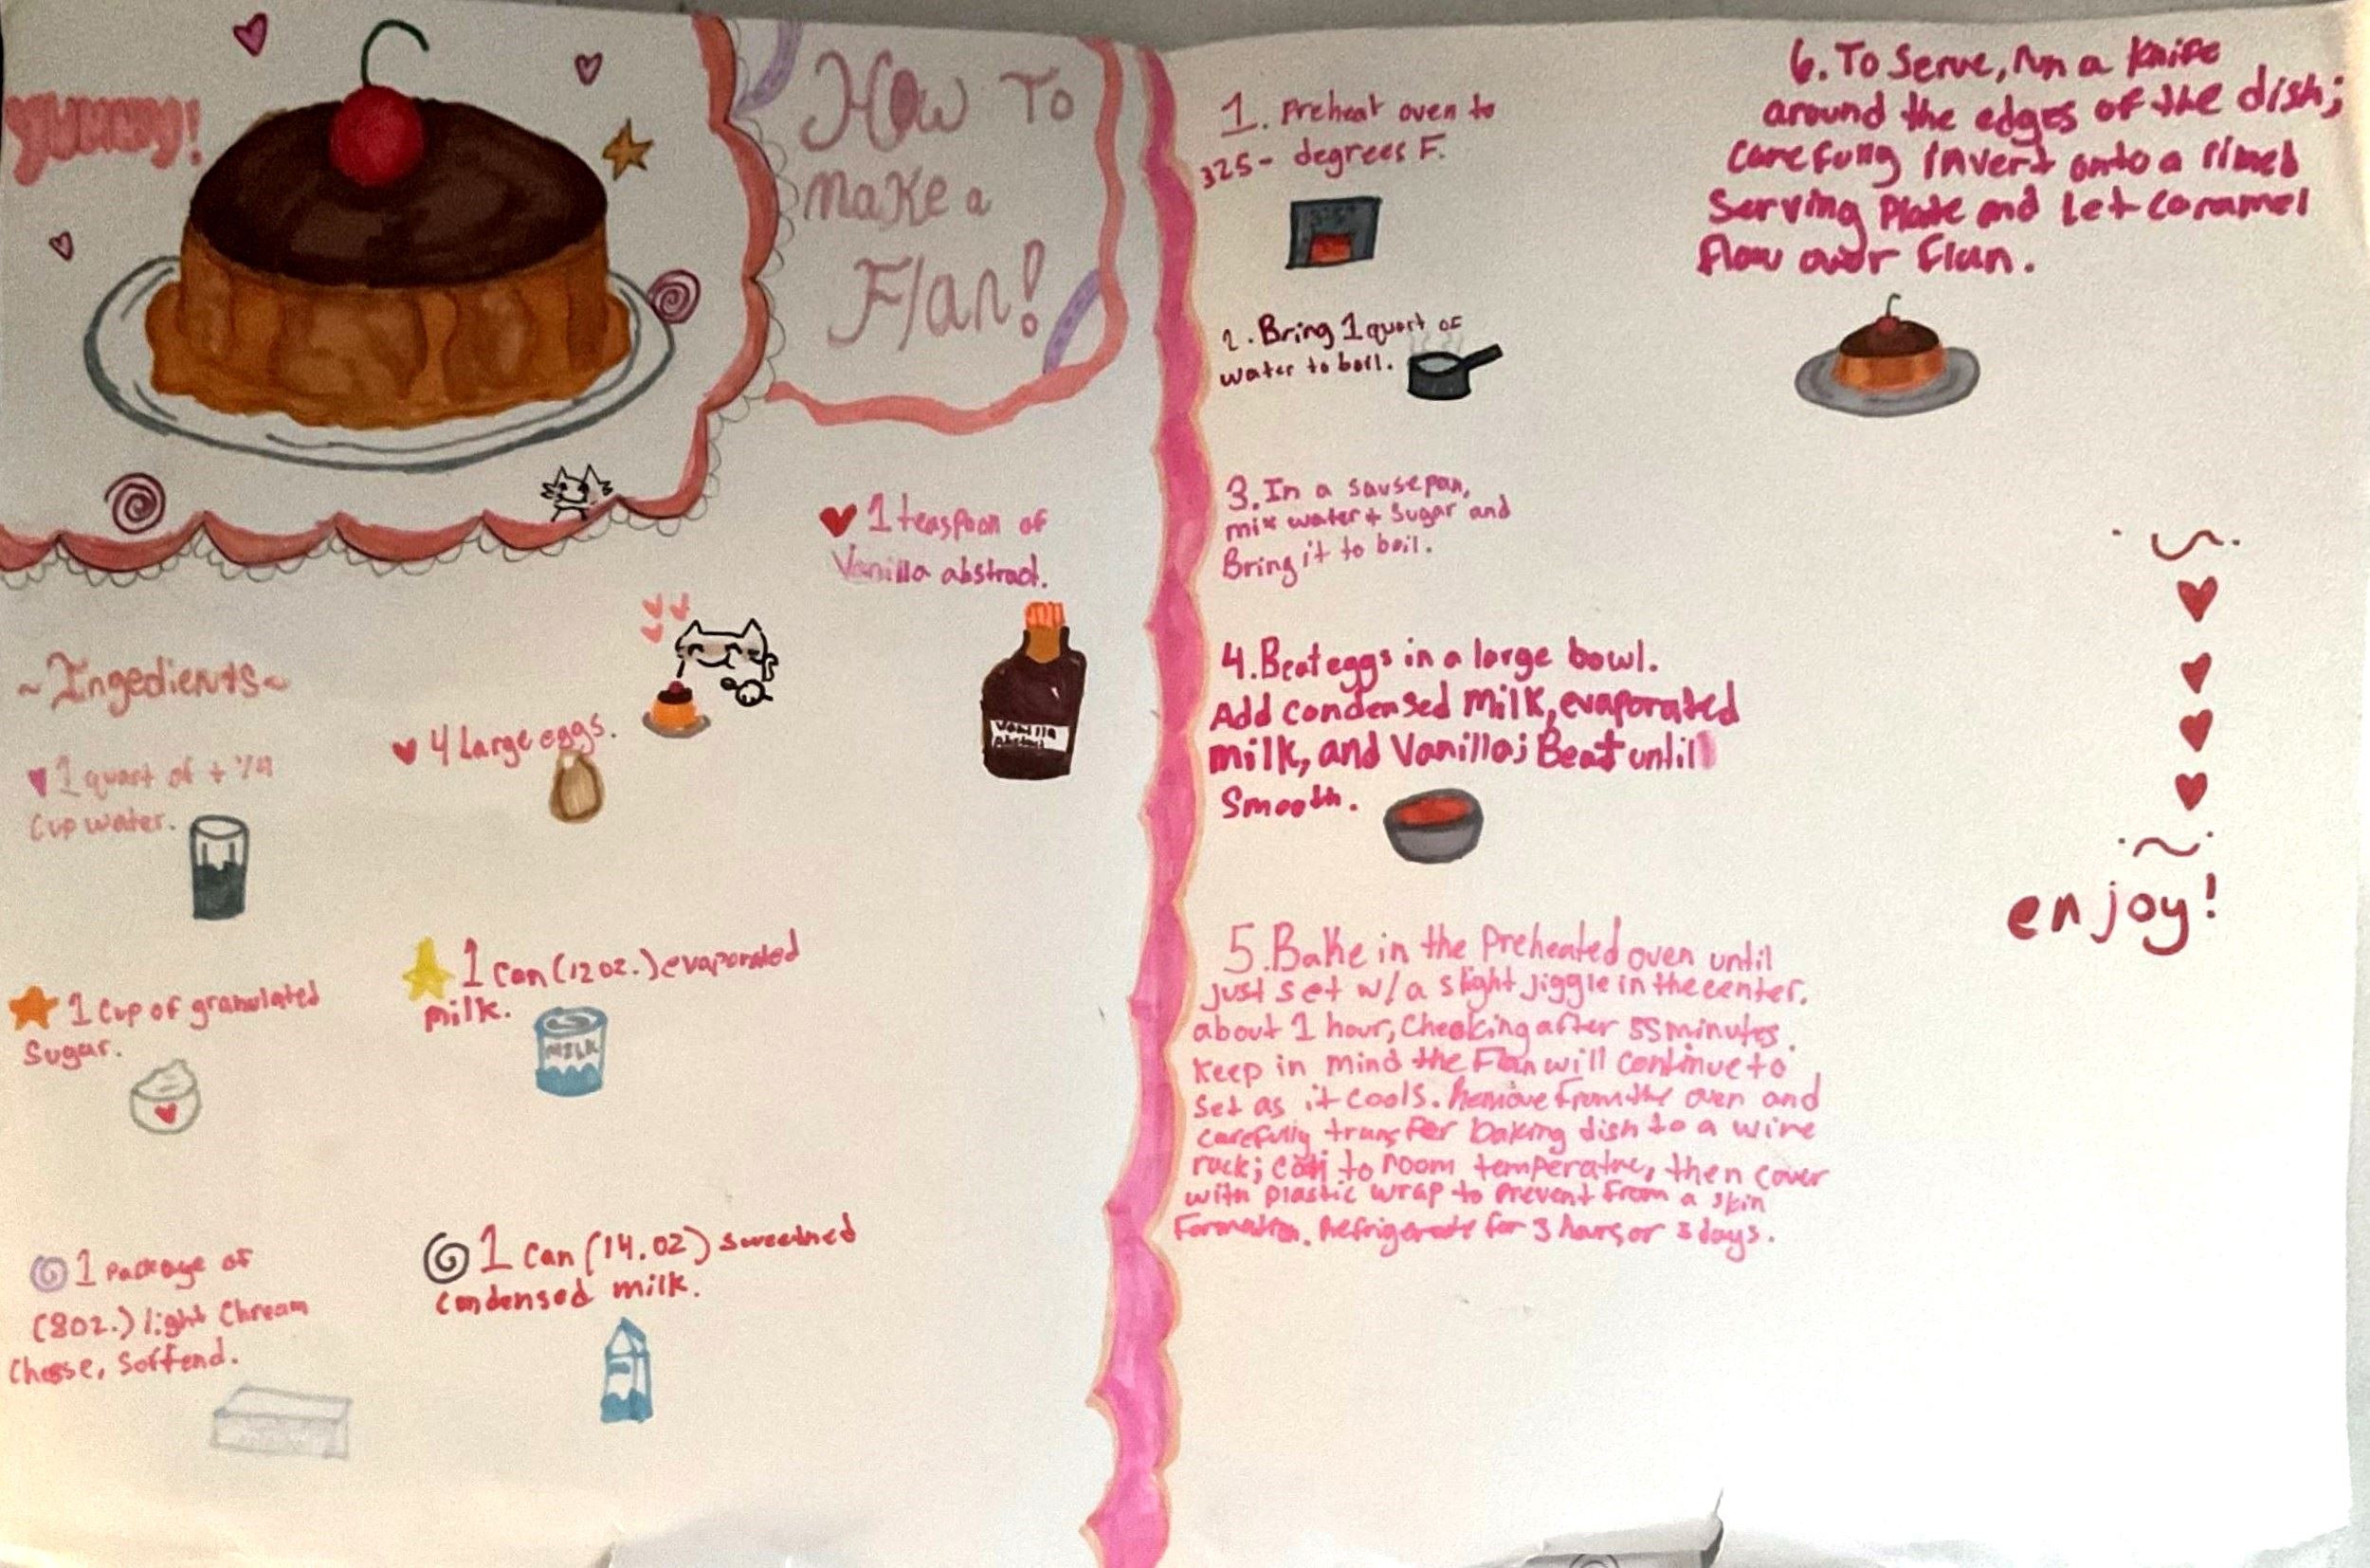 YUMMY!
How To
make a
Flan!
~Ingedients~
1 quart of + 1/4
Cup water.
1 Cup of granulated
Sugar.
1 Package of
(8oz.) light Chream
Cheese, Soffend.
4 Large eggs.
1 Can (12 oz.) evaporated
milk.
MILK
1 Can (14.02) sweetned
condensed milk.
1 teaspoon of
Vanilla abstract.
Vanilla
1. Preheat oven to
325- degrees F.
2. Bring 1 quart of
water to boil.
3. In a sausepan,
mix water + Sugar and
Bring it to boil.
4. Beat eggs in a large bowl.
Add condensed milk, evaporated
milk, and Vanilla; Beat until
Smooth.
5. Bake in the Preheated oven until
just set w/a slight jiggle in the center.
about 1 hour, Checking after 55 minutes.
Keep in mind the Flan will continue to
set as it cools. Remove from the oven and
carefully transfer baking dish to a wire
rack; to room temperature, then cover
with plastic wrap to prevent from a skin
Formation. Refrigerate for 3 hours or 3 days.
6. To Serve, run a knife
around the edges of the dish;
carefully invert onto a rimed
Serving Plate and let caramel
flow over Flan.
enjoy!